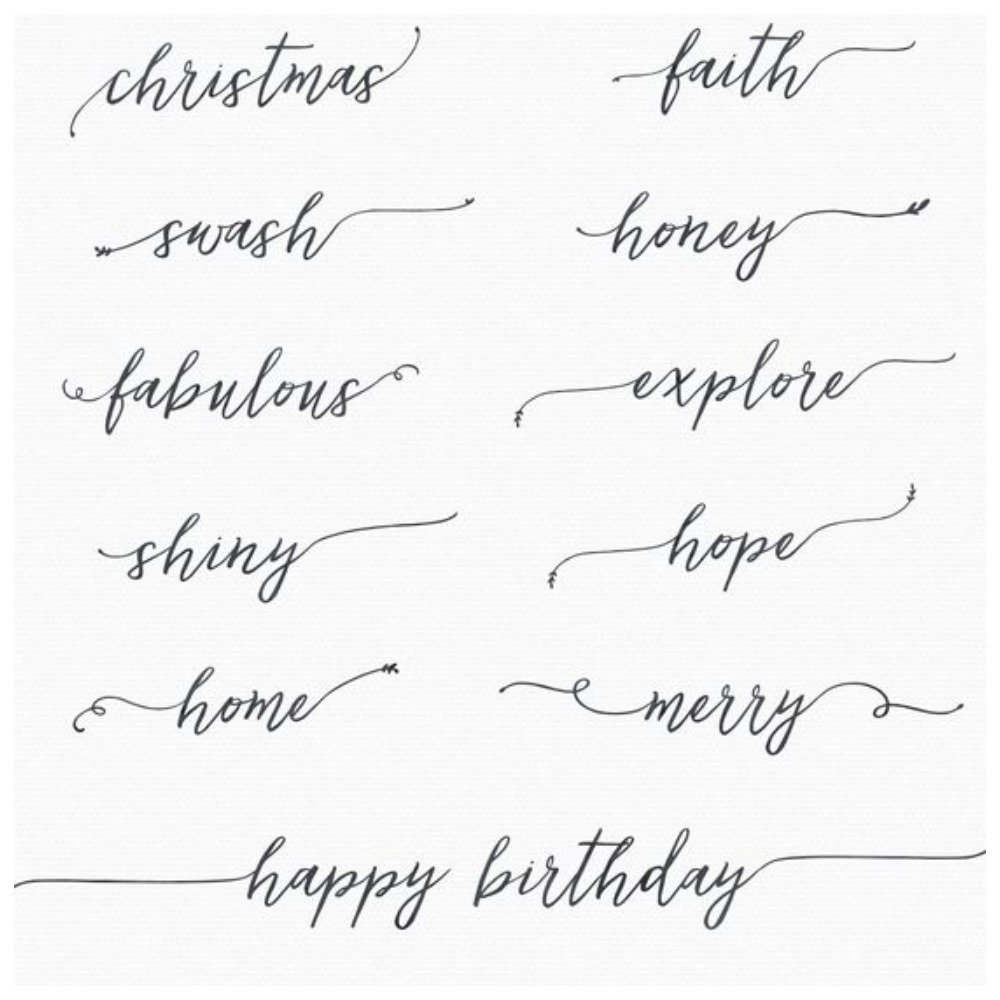 christmas faith
swash honey
fabulous explore
shiny hope
home merry
happy birthday